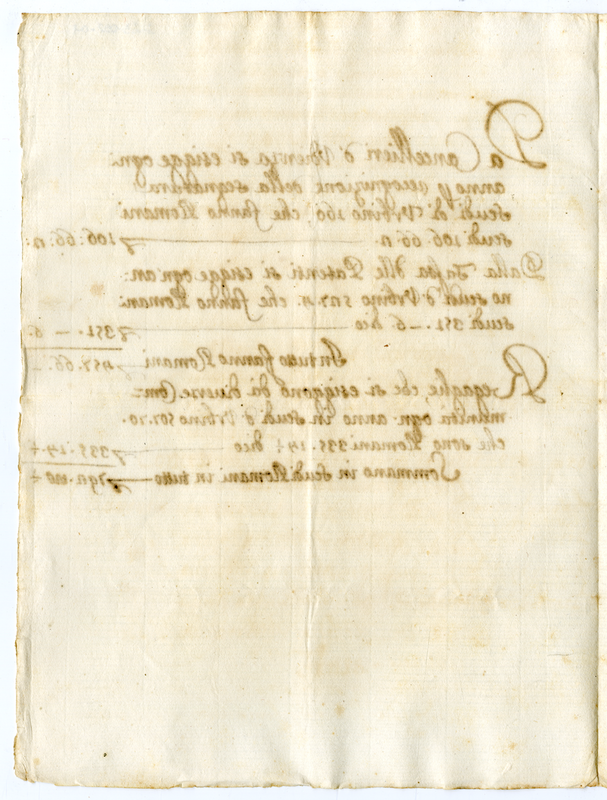 Da Cancellieri d' si esige ogn:
anno p recognizione della segnatura
scudi d' Urbino 160. che fanno Romani
scudi 106. 66. n. 106: 66: n:
Dalla Tassa dlle Patenti si esige ogn'an:
no scudi d' Urbino 527. n. che fanno Romani
scudi 351. – 6. dico 351. – 6.
In tutto fanno Romani 457. 66. –
Regaglie, che si esiggono da diverse Com:
munità ogn' anno in scudi d' Urbino 507. 70.
che sono Romani 335. 14 dico 335. 14.
Sommano in scudi Romani in tutto